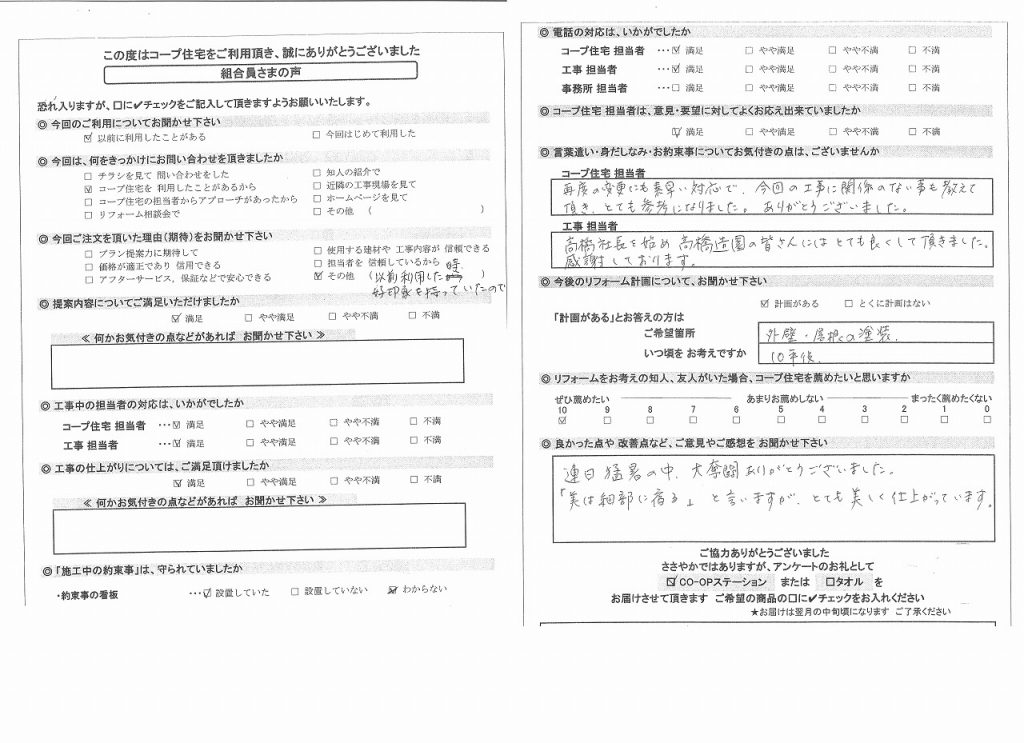 この度はコープ住宅をご利用頂き、誠にありがとうございました
組合員さまの声
恐れ入りますが、□に✔チェックをご記入して頂きますようお願いいたします。
◎ 今回のご利用についてお聞かせ下さい
☑ 以前に利用したことがある □ 今回はじめて利用した
◎ 今回は、何をきっかけにお問い合わせを頂きましたか
□ チラシを見て 問い合わせをした □ 知人の紹介で
☑ コープ住宅を 利用したことがあるから □ 近隣の工事現場を見て
□ コープ住宅の担当者からアプローチがあったから □ ホームページを見て
□ リフォーム相談会で □ その他 ( )
◎ 今回ご注文を頂いた理由(期待)をお聞かせ下さい
□ プラン提案力に期待して □ 使用する建材や 工事内容が 信頼できる
□ 価格が適正であり 信用できる □ 担当者を 信頼しているから
□ アフターサービス，保証などで安心できる ☑ その他 (以前利用した時 )
好印象を持っていたので
◎ 提案内容についてご満足いただけましたか
☑ 満足 □ やや満足 □ やや不満 □ 不満
≪ 何かお気付きの点などがあれば お聞かせ下さい ≫
◎ 工事中の担当者の対応は、いかがでしたか
コープ住宅 担当者 …☑ 満足 □ やや満足 □ やや不満 □ 不満
工事 担当者 …☑ 満足 □ やや満足 □ やや不満 □ 不満
◎ 工事の仕上がりについては、ご満足頂けましたか
☑ 満足 □ やや満足 □ やや不満 □ 不満
≪ 何かお気付きの点などがあれば お聞かせ下さい ≫
◎ 「施工中の約束事」は、守られていましたか
・約束事の看板 …☑ 設置していた □ 設置していない ☑ わからない
◎ 電話の対応は、いかがでしたか
コープ住宅 担当者 …☑ 満足 □ やや満足 □ やや不満 □ 不満
工事 担当者 …☑ 満足 □ やや満足 □ やや不満 □ 不満
事務所 担当者 …□ 満足 □ やや満足 □ やや不満 □ 不満
◎ コープ住宅 担当者は、意見・要望に対してよくお応え出来ていましたか
☑ 満足 □ やや満足 □ やや不満 □ 不満
◎ 言葉遣い・身だしなみ・お約束事についてお気付きの点は、ございませんか
コープ住宅 担当者
再度の変更にも素早い対応で、今回の工事に関係のない事も教えて
頂き、とても参考になりました。 ありがとうございました。
工事 担当者
高橋社長を始め 高橋造園の皆さんにはとても良くして頂きました。
感謝しております。
◎ 今後のリフォーム計画について、お聞かせ下さい
☑ 計画がある □ とくに計画はない
「計画がある」とお答えの方は
ご希望箇所 外壁・屋根の塗装、
いつ頃を お考えですか 10年後、
◎ リフォームをお考えの知人、友人がいた場合、コープ住宅を薦めたいと思いますか
ぜひ薦めたい あまりお薦めしない まったく薦めたくない
10 9 8 7 6 5 4 3 2 1 0
☑ □ □ □ □ □ □ □ □ □ □
◎ 良かった点や 改善点など、ご意見やご感想を お聞かせ下さい
連日猛暑の中、大奮闘ありがとうございました。
「美は細部に宿る」と言いますが、とても美しく仕上がっています。
ご協力ありがとうございました
ささやかではありますが、アンケートのお礼として
☑CO-OPステーション または □タオル を
お届けさせて頂きます ご希望の商品の□に✔チェックをお入れください
★お届けは翌月の中旬頃になります ご了承ください